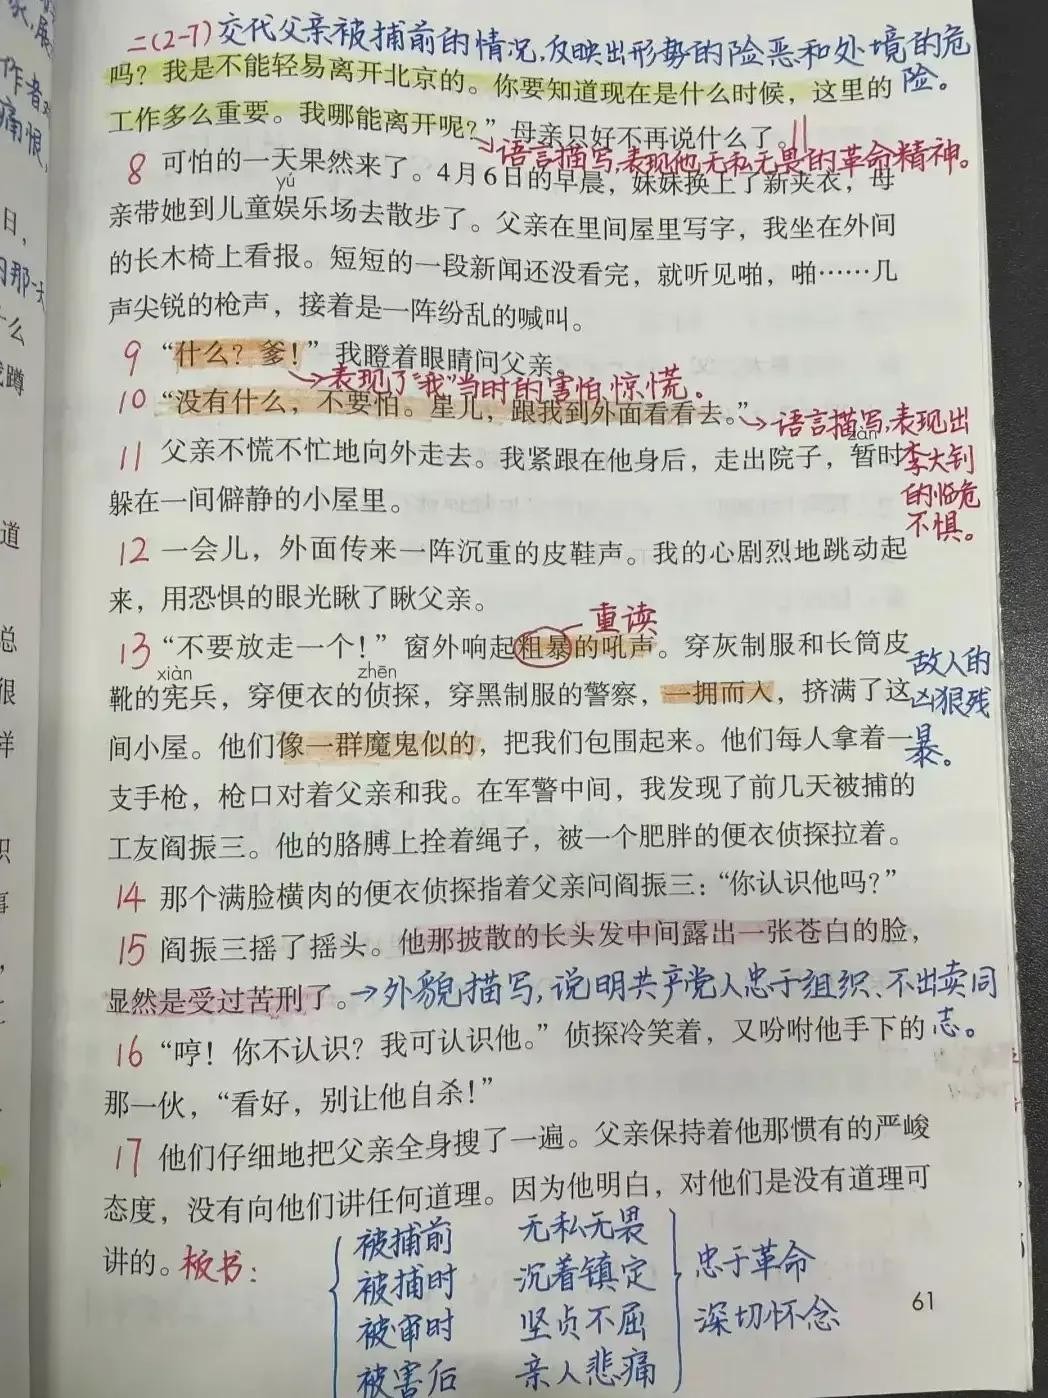 二(2-7)交代父亲被捕前的情况,反映出形势的险恶和处境的危
险。
吗？我是不能轻易离开北京的。你要知道现在是什么时候，这里的
工作多么重要。我哪能离开呢？”母亲只好不再说什么了。
→语言描写,表现他无私无畏的革命精神。
8 可怕的一天果然来了。4月6日的早晨，妹妹换上了新夹衣，母
yú
亲带她到儿童娱乐场去散步了。父亲在里间屋里写字，我坐在外间
的长木椅上看报。短短的一段新闻还没看完，就听见啪，啪……几
声尖锐的枪声，接着是一阵纷乱的喊叫。
9 “什么？爹！”我瞪着眼睛问父亲。
→表现了“我”当时的害怕、惊慌。
10 “没有什么，不要怕。星儿，跟我到外面看看去。”
→语言描写,表现出
李大钊
的临危
不惧。
zàn
11 父亲不慌不忙地向外走去。我紧跟在他身后，走出院子，暂时
躲在一间僻静的小屋里。
12 一会儿，外面传来一阵沉重的皮鞋声。我的心剧烈地跳动起
来，用恐惧的眼光瞅了瞅父亲。
重读
13 “不要放走一个！”窗外响起粗暴的吼声。穿灰制服和长筒皮
xiàn zhēn
靴的宪兵，穿便衣的侦探，穿黑制服的警察，一拥而入，挤满了这
敌人的
凶狠残
暴。
间小屋。他们像一群魔鬼似的，把我们包围起来。他们每人拿着一
支手枪，枪口对着父亲和我。在军警中间，我发现了前几天被捕的
工友阎振三。他的胳膊上拴着绳子，被一个肥胖的便衣侦探拉着。
14 那个满脸横肉的便衣侦探指着父亲问阎振三：“你认识他吗？”
15 阎振三摇了摇头。他那披散的长头发中间露出一张苍白的脸，
显然是受过苦刑了。
→外貌描写,说明共产党人忠于组织、不出卖同
志。
16 “哼！你不认识？我可认识他。”侦探冷笑着，又吩咐他手下的
那一伙，“看好，别让他自杀！”
17 他们仔细地把父亲全身搜了一遍。父亲保持着他那惯有的严峻
态度，没有向他们讲任何道理。因为他明白，对他们是没有道理可
讲的。
板书:
被捕前 无私无畏
被捕时 沉着镇定
被审时 坚贞不屈
被害后 亲人悲痛
忠于革命
深切怀念
61
作者对
痛恨,
日，
那一天
什么
蹲
道
总
很
样
识
事